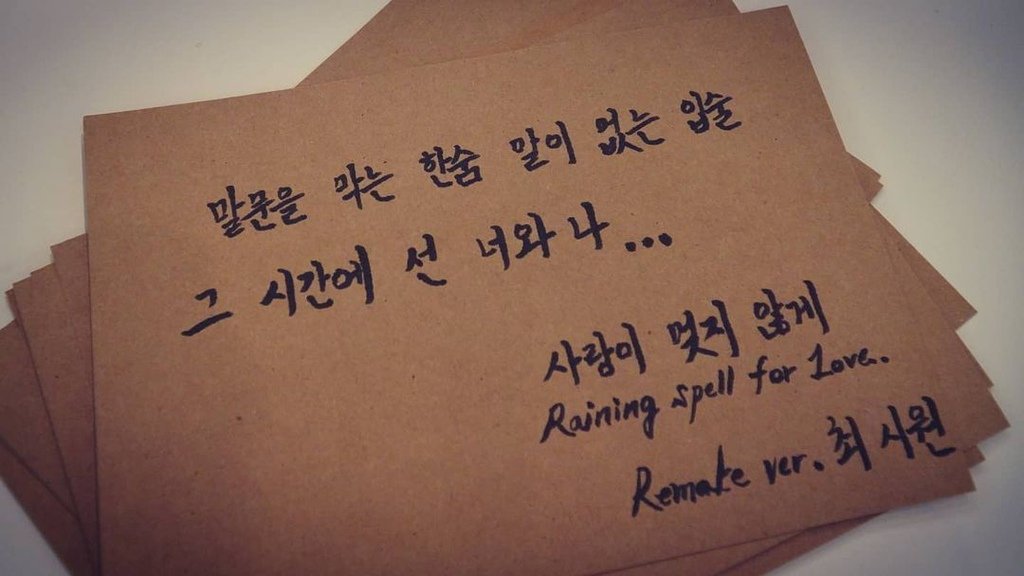 말문을 막는 한숨 말이 없는 입술
그 시간에 선 너와 나...
사랑이 멎지 않게
Raining spell for Love.
Remake ver. 최시원